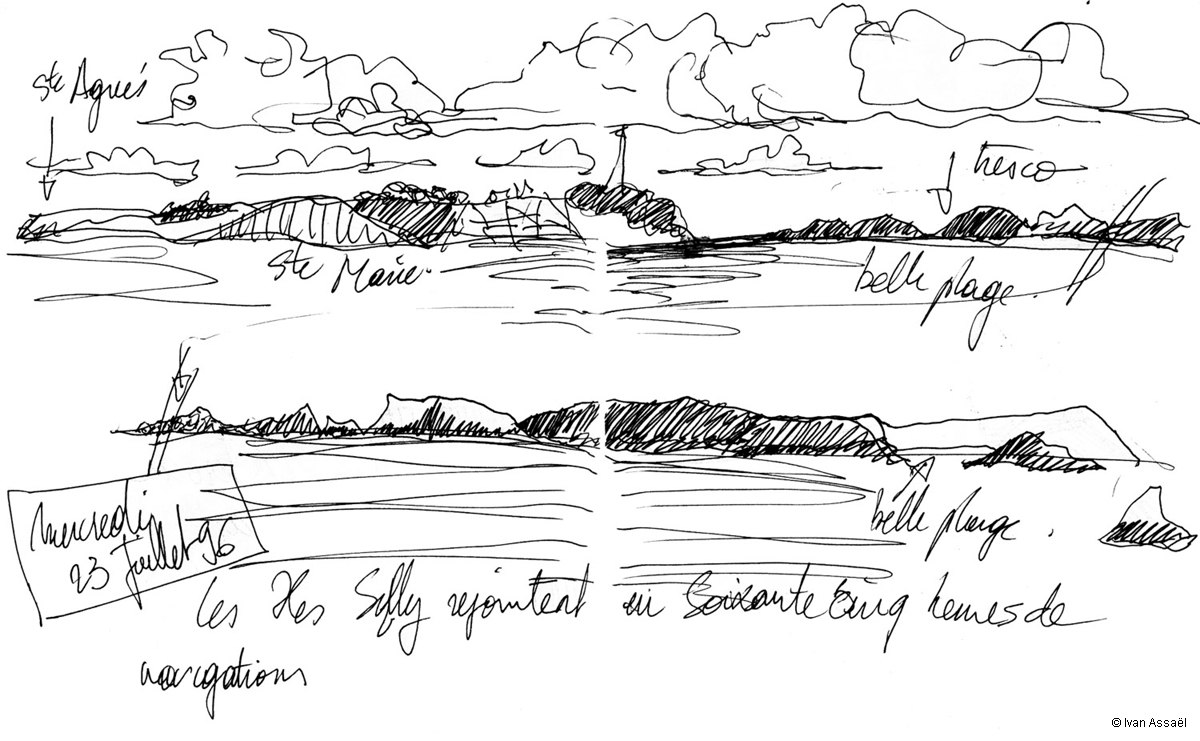 ste Agnés
tresco
ste Marie.
belle plage.
belle plage.
Mercredi
23 Juillet 96
Les Iles Silly rejointent en Soixante Cinq heures de
navigations
© Ivan Assaël